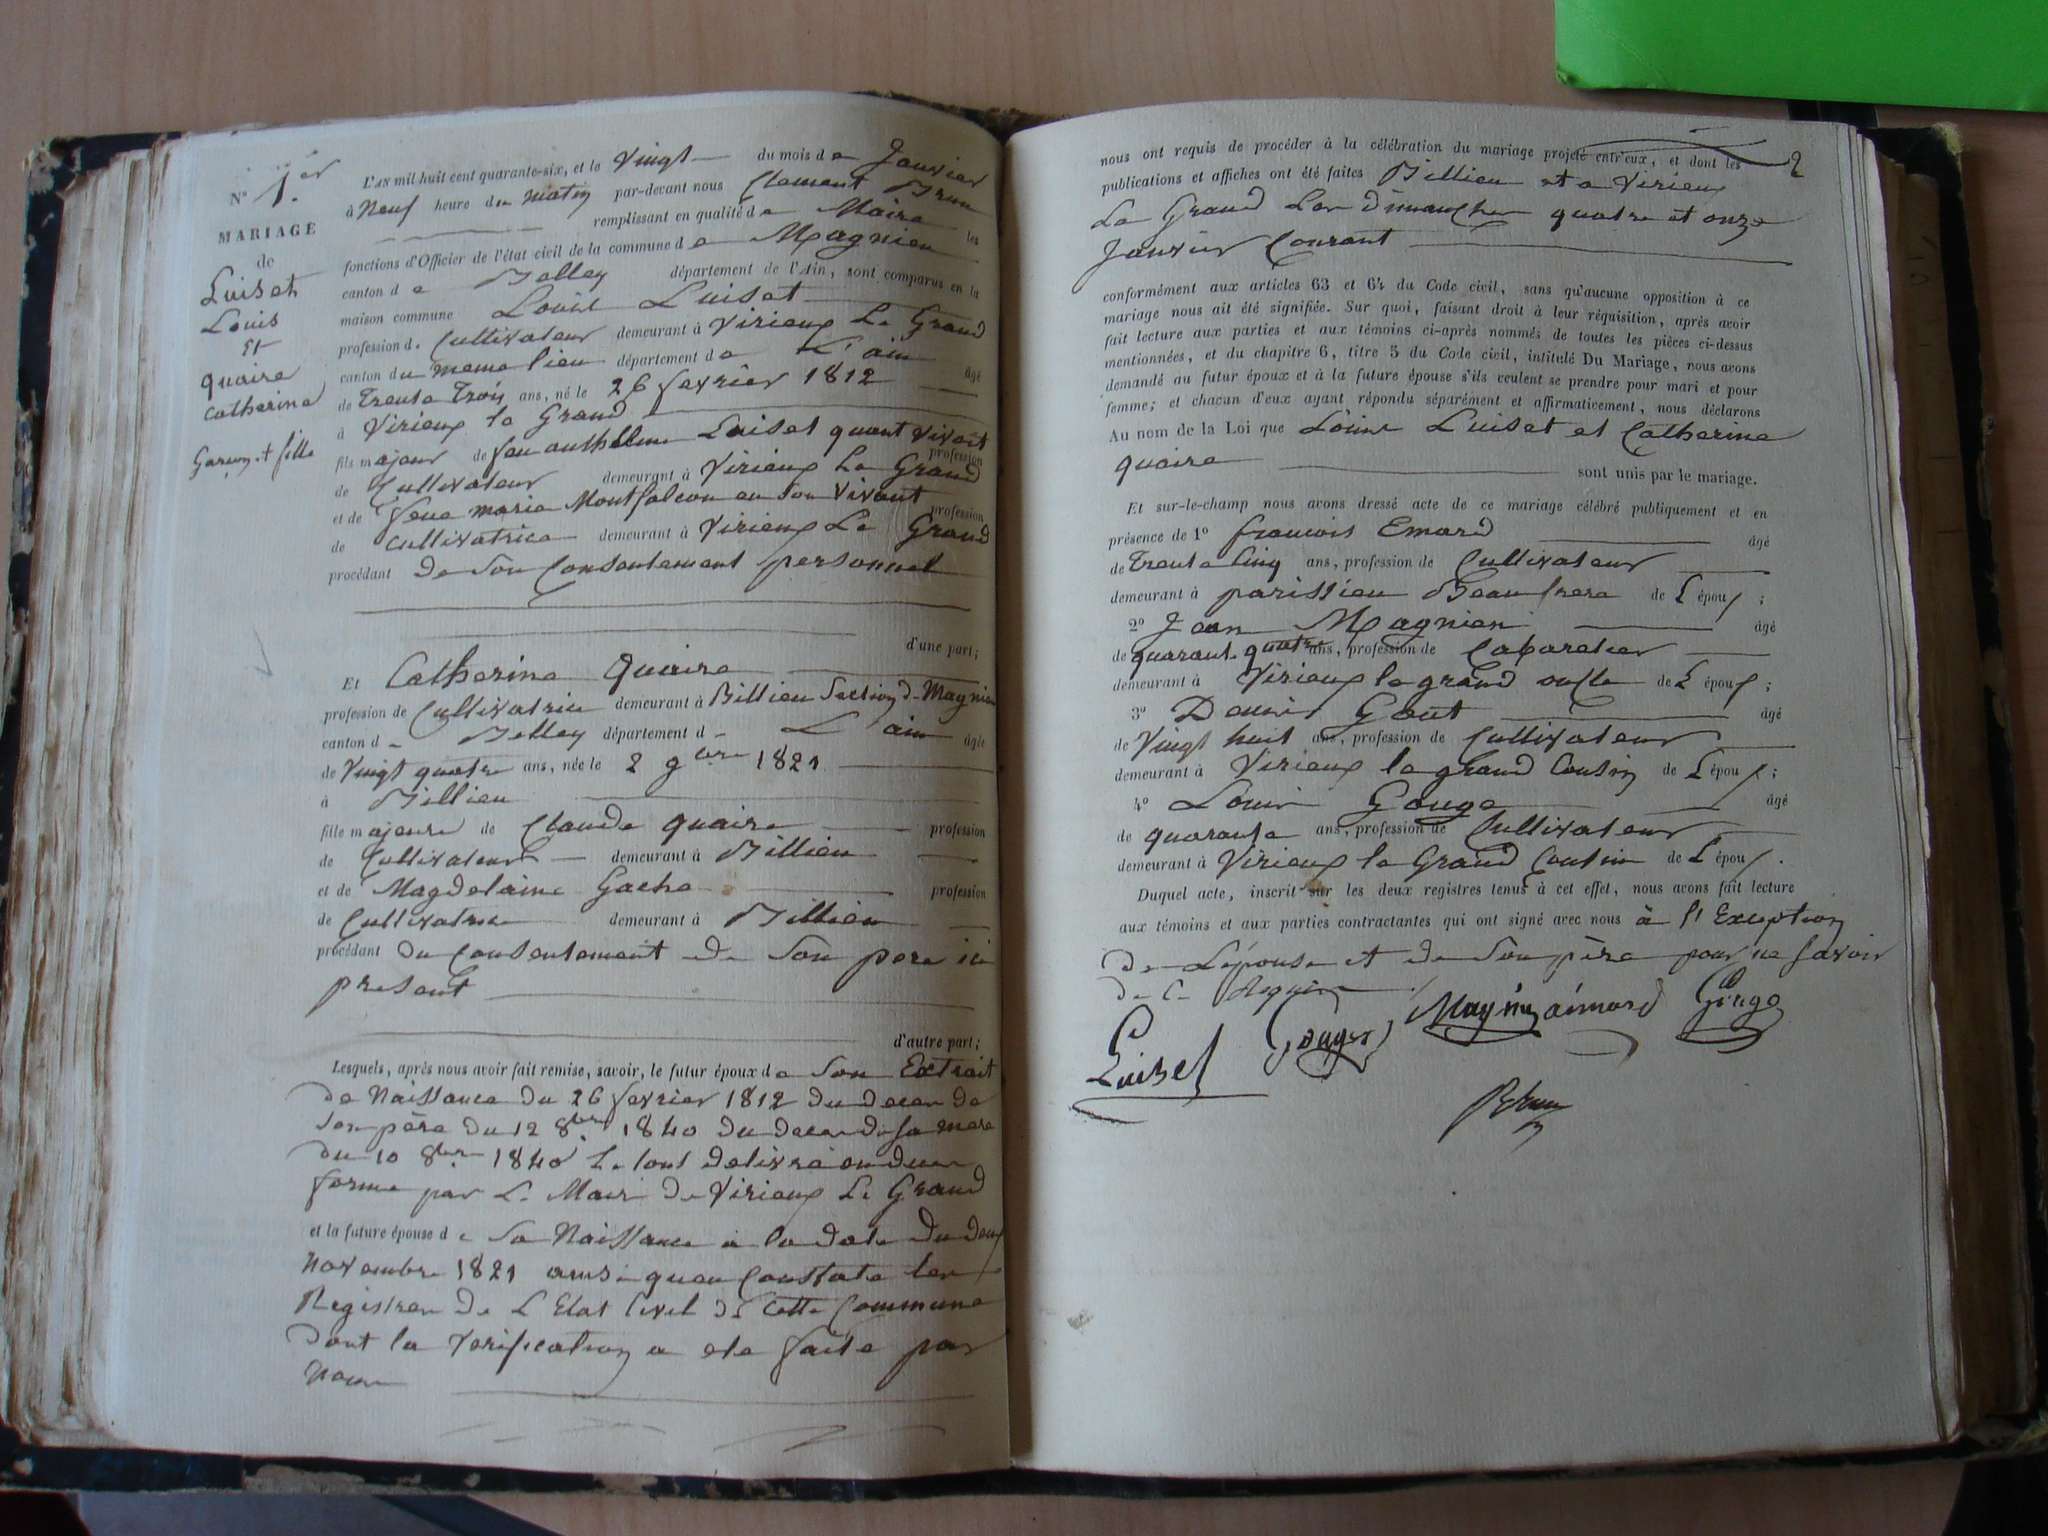 N° 1.er
MARIAGE
de
Luiset
Louis
Et
quaire
Catherine
Garçon et fille
L'AN mil huit cent quarante-six, et le Vingt du mois de Janvier
à Neuf heure du matin par-devant nous Clement Brun
remplissant en qualité de Maire les
fonctions d'Officier de l'état civil de la commune de Magnieu
canton de Belley département de l'Ain, sont comparus en la
maison commune Louis Luiset
profession de Cultivateur demeurant à Virieux Le Grand
canton du meme lieu département de L'ain âgé
de Trente Trois ans, né le 26 fevrier 1812
à Virieux le Grand
fils majeur de feu anthelme Luiset quant vivait profession
de Cultivateur demeurant à Virieux Le Grand
et de feue marie Montfalcon en son vivant profession
de cultivatrice demeurant à Virieux Le Grand
procédant de son Consentement personnel
d'une part;
Et Catherine quaire
profession de Cultivatrice demeurant à Billieu Section de Magnieu
canton de Belley département de L'ain âgée
de Vingt quatre ans, née le 2 9bre 1821
à Billieu
fille majeure de Claude quaire profession
de Cultivateur demeurant à Billieu
et de Magdelaine Gache profession
de Cultivatrice demeurant à Billieu
procédant du Consentement de Son pere ici
present
d'autre part;
Lesquels, après nous avoir fait remise, savoir, le futur époux de Son Extrait
de Naissance du 26 fevrier 1812 du deces de
son père du 12 8bre 1840 du deces de sa mere
du 10 8bre 1840 Le tout delivré en due
forme par Le Maire de Virieux Le Grand
et la future épouse de Sa Naissance a la date du deux
Novembre 1821 ainsi quen Constate les
Registres de L'Etat Civil de Cette Commune
dont la verification a ete faite par
nous
2
nous ont requis de procéder à la célébration du mariage projeté entr'eux, et dont les
publications et affiches ont été faites Billieu et a Virieux
Le Grand Les dimanches quatre et onze
Janvier Courant
conformément aux articles 63 et 64 du Code civil, sans qu'aucune opposition à ce
mariage nous ait été signifiée. Sur quoi, faisant droit à leur réquisition, après avoir
fait lecture aux parties et aux témoins ci-après nommés de toutes les pièces ci-dessus
mentionnées, et du chapitre 6, titre 5 du Code civil, intitulé Du Mariage, nous avons
demandé au futur époux et à la future épouse s'ils veulent se prendre pour mari et pour
femme; et chacun d'eux ayant répondu séparément et affirmativement, nous déclarons
Au nom de la Loi que Louis Luiset et Catherine
quaire sont unis par le mariage.
Et sur-le-champ nous avons dressé acte de ce mariage célébré publiquement et en
présence de 1° francois Emard âgé
de Trente Cinq ans, profession de Cultivateur
demeurant à parissieu Beau frere de L'époux;
2° Jean Magnien âgé
de quarante quatre ans, profession de Cabaretier
demeurant à Virieux le grand oncle de L'époux;
3° Denis Gout âgé
de Vingt huit ans, profession de Cultivateur
demeurant à Virieux le grand Cousin de L'époux;
4° Louis Gouge âgé
de quarante ans, profession de Cultivateur
demeurant à Virieux le Grand Cousin de L'époux.
Duquel acte, inscrit sur les deux registres tenus à cet effet, nous avons fait lecture
aux témoins et aux parties contractantes qui ont signé avec nous à l'Exception
de L'épouse et de Son père pour ne Savoir
de Ce Requis
Luiset Magnin aimard Gouge
Brun